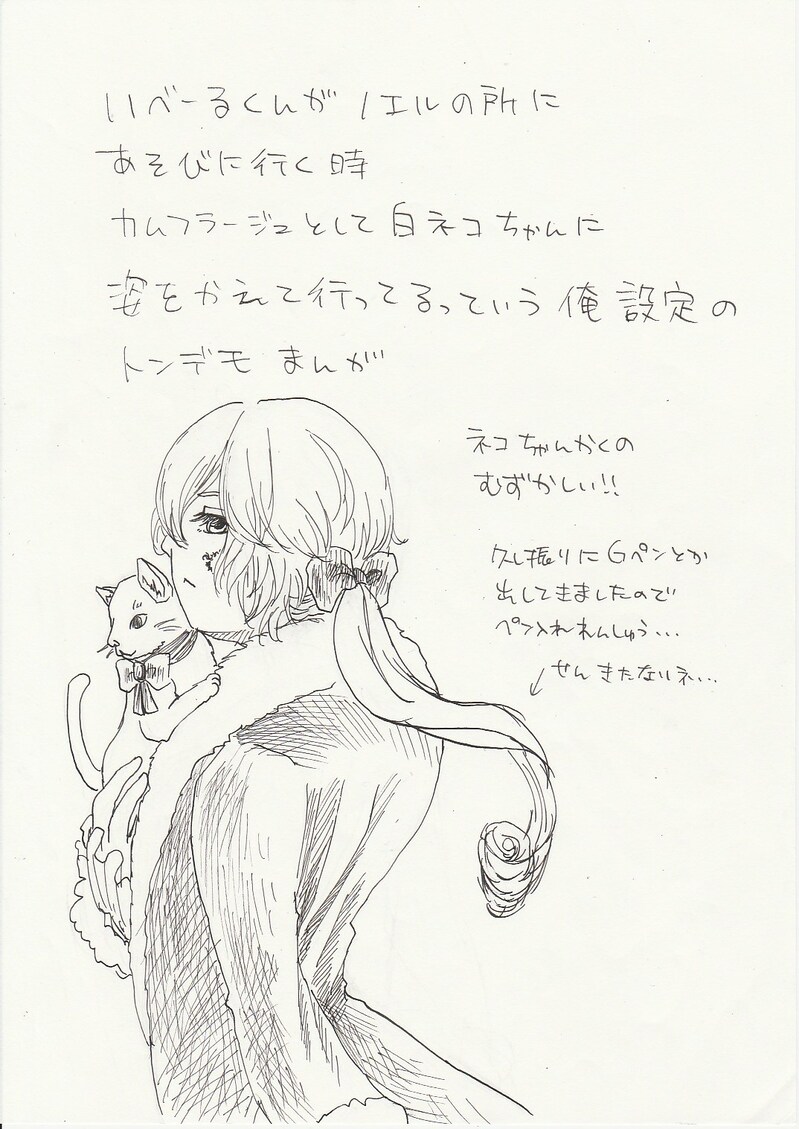 いべーるくんがノエルの所に
あそびに行く時
カムフラージュとして白ネコちゃんに
姿をかえて行ってるっていう俺設定の
トンデモまんが
ネコちゃんかくの
むずかしい!!
久し振りにGペンとか
出してきましたので
ペン入れれんしゅう...
↙せんきたないネ...